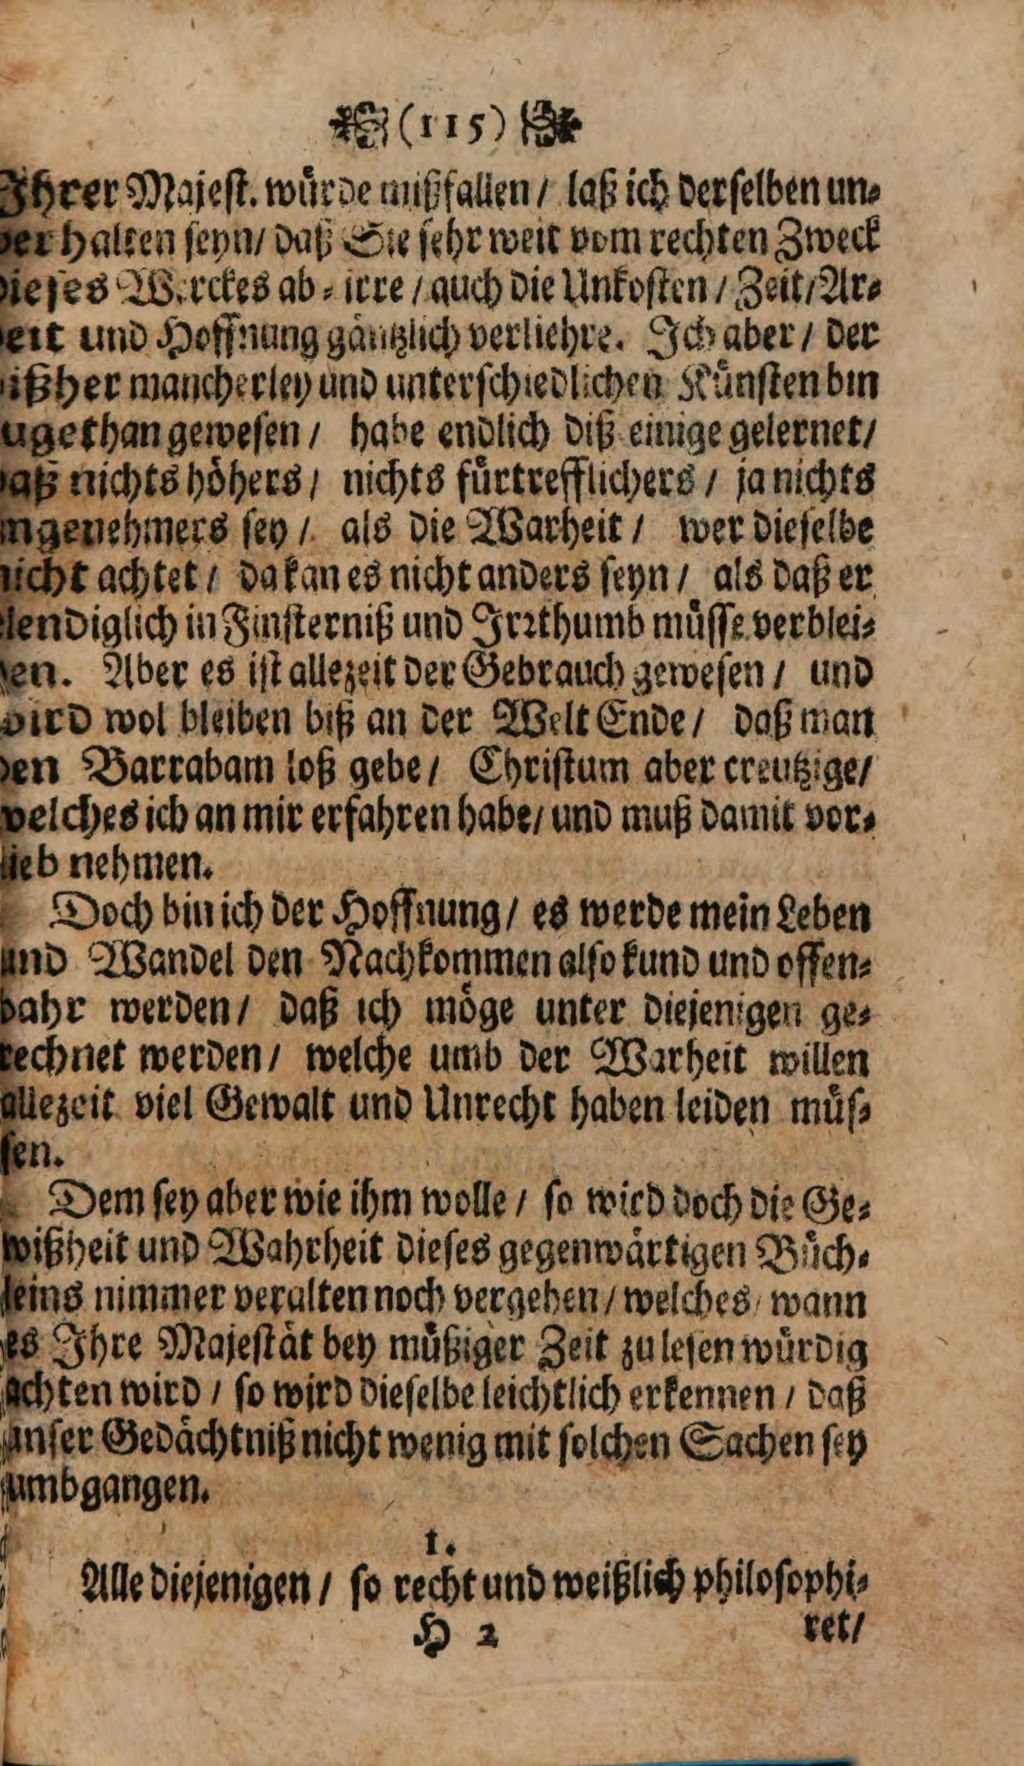 (115)
Ihrer Majest. würde mißfallen / laß ich derselben un⸗
halten seyn / daß Sie sehr weit vom rechten Zweck
dieses Werckes ab⸗irre / auch die Unkosten / Zeit / Ar⸗
beit und Hoffnung gäntzlich verliehre. Ich aber / der
bißher mancherley und unterschiedlichen Künsten bin
zugethan gewesen / habe endlich diß einige gelernet /
daß nichts höhers / nichts fürtrefflichers / ja nichts
angenehmers sey / als die Warheit / wer dieselbe
nicht achtet / da kan es nicht anders seyn / als daß er
elendiglich in Finsterniß und Irrthumb müsse verblei⸗
ben. Aber es ist allezeit der Gebrauch gewesen / und
wird wol bleiben biß an der Welt Ende / daß man
den Barrabam loß gebe / Christum aber creutzige /
welches ich an mir erfahren habe / und muß damit vor⸗
lieb nehmen.
Doch bin ich der Hoffnung / es werde mein Leben
und Wandel den Nachkommen also kund und offen⸗
bahr werden / daß ich möge unter diejenigen ge⸗
rechnet werden / welche umb der Warheit willen
allezeit viel Gewalt und Unrecht haben leiden müs⸗
sen.
Dem sey aber wie ihm wolle / so wird doch die Ge⸗
wißheit und Wahrheit dieses gegenwärtigen Büch⸗
leins nimmer veralten noch vergehen / welches / wann
es Ihre Majestät bey müßiger Zeit zu lesen würdig
achten wird / so wird dieselbe leichtlich erkennen / daß
unser Gedächtniß nicht wenig mit solchen Sachen sey
umbgangen.
1.
Alle diejenigen / so recht und weißlich philosophi⸗
H 2 ret /